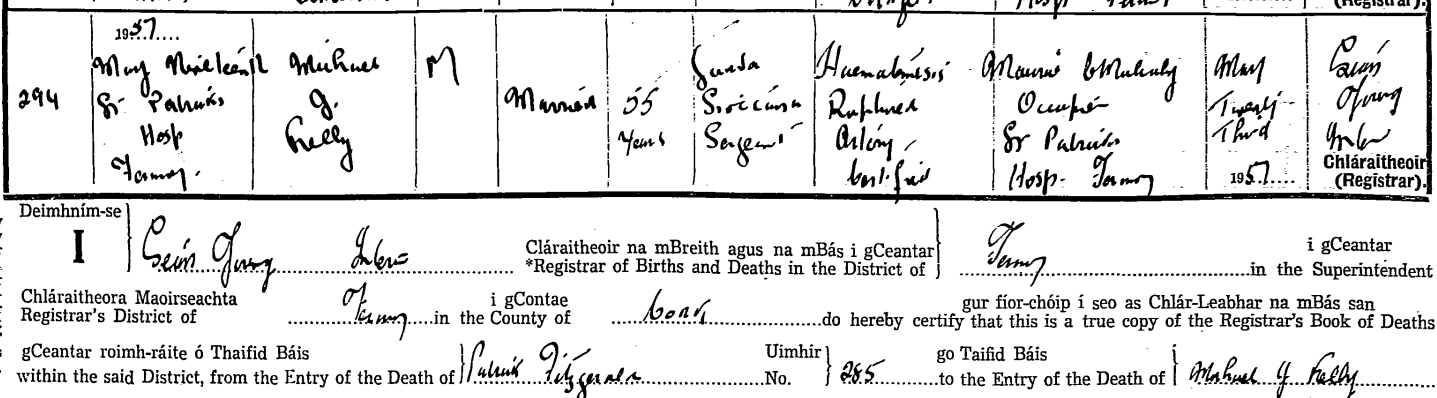 (Registrar).
1957....
294
May Nineteenth
St Patricks
Hosp
Fermoy.
Michael
J.
Kelly
M
Married
55
Years
Garda
Síochána
Sergeant
Haematemesis
Ruptured
Artery,
Certified
Occupier
St Patricks
Hosp. Fermoy
May
Twenty
Third
1957....
Seán
Chláraitheoir
(Registrar).
Deimhním-se
I
Seán
Cláraitheoir na mBreith agus na mBás i gCeantar
*Registrar of Births and Deaths in the District of
Fermoy
i gCeantar
in the Superintendent
Chláraitheora Maoirseachta
Registrar's District of
Fermoy
i gContae
in the County of
Cork
gur fíor-chóip í seo as Chlár-Leabhar na mBás san
do hereby certify that this is a true copy of the Registrar's Book of Deaths
gCeantar roimh-ráite ó Thaifid Báis
within the said District, from the Entry of the Death of
Patrick Fitzgerald
Uimhir
No.
285
go Taifid Báis
to the Entry of the Death of
Michael J Kelly